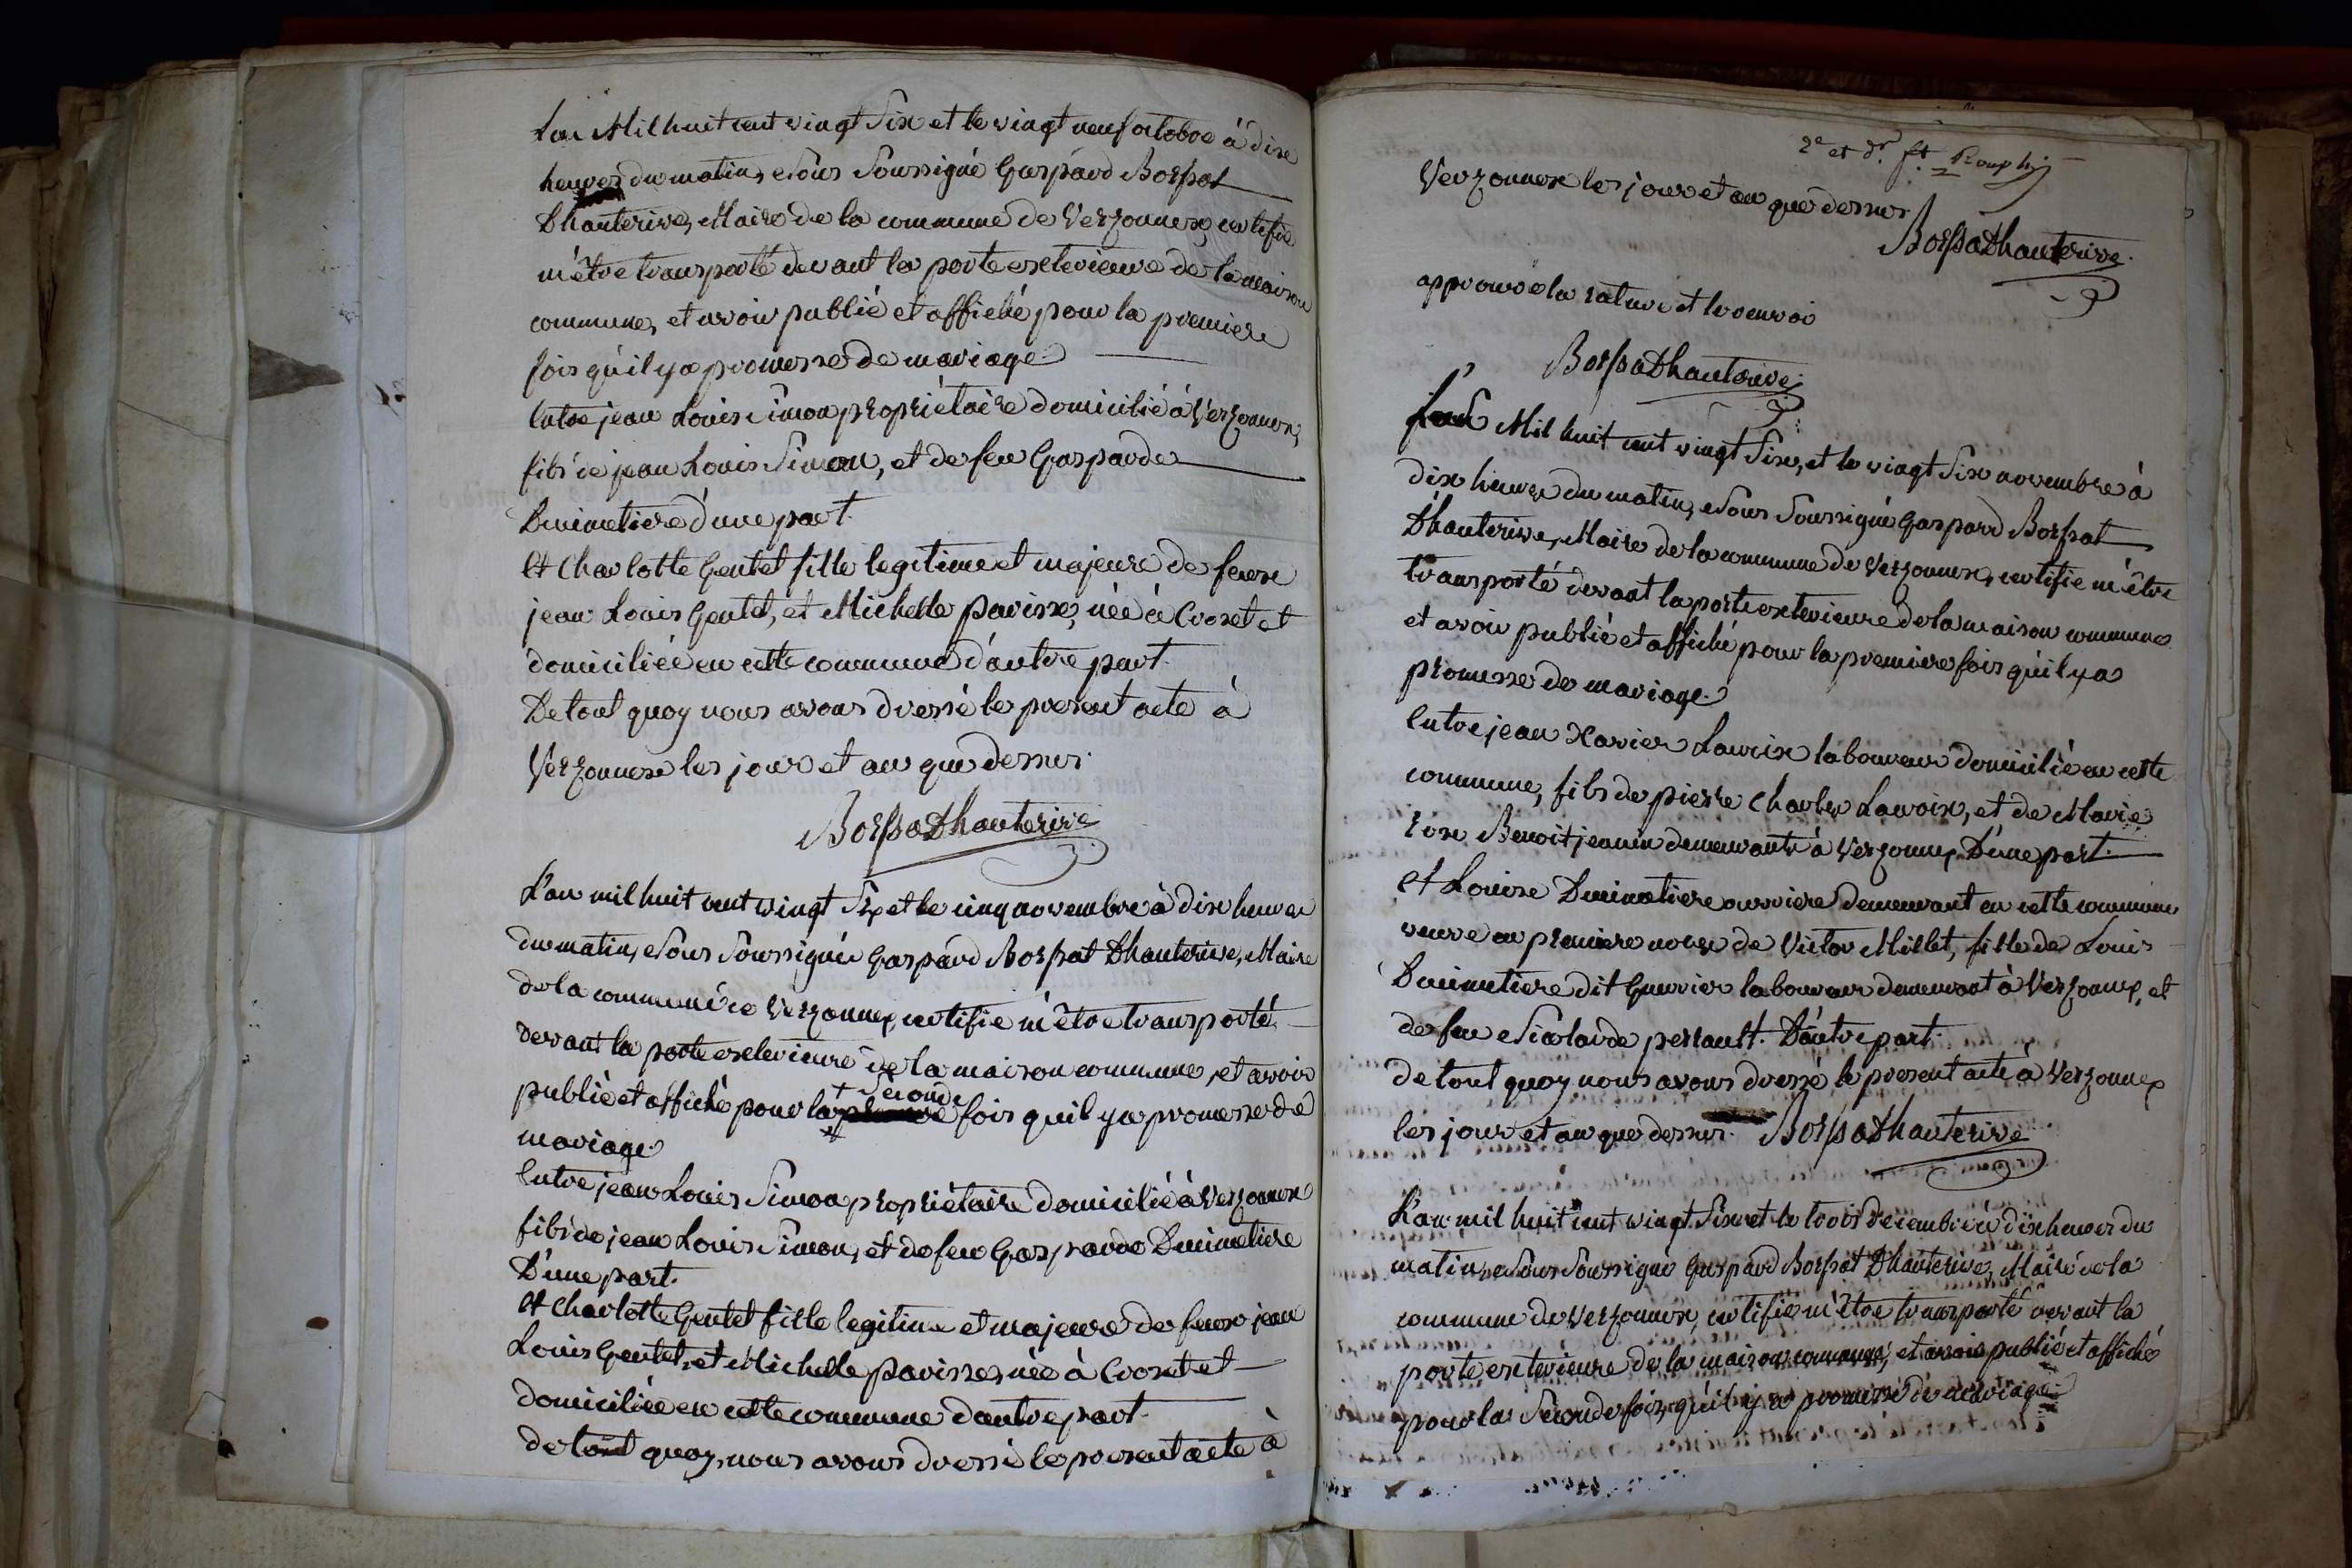 L'an Mil huit cent vingt Six et le vingt neuf octobre à dix
heures du matin, Nous Soussigné Gaspard Borssat
Dhauterive, Maire de la commune de Verzonnex, certifie
m'être transporté devant la porte exterieure de la maison
commune, et avoir publié et affiché pour la premiere
fois qu'il y a promesse de mariage
Entre jean Louis Simon propriétaire domicilié à Verzonnex,
fils de jean Louis Simon, et de feue Gasparde
Dunimetiere d'une part.
Et Charlotte Gentet fille legitime et majeure de feux
jean Louis Gentet, et Michelle pavisse, née à Crozet et
domiciliée en cette commune d'autre part.
De tout quoy nous avons dressé le present acte à
Verzonnex les jour et an que dessus.
Borssat Dhauterive
L'an mil huit cent vingt Six et le cinq novembre à dix heures
du matin, Nous Soussigné Gaspard Borssat Dhauterive, Maire
de la commune de Verzonnex, certifie m'être transporté
devant la porte exterieure de la maison commune, et avoir
+ Seconde
publié et affiché pour la fois quil y a promesse de
mariage
Entre jean Louis Simon propriétaire domicilié à Verzonnex
fils de jean Louis Simon, et de feue Gasparde Dunimetiere
D'une part.
Et Charlotte Gentet fille legitime et majeure de feux jean
Louis Gentet, et Michelle pavisse, née à Crozet et
domiciliée en cette commune dautre part.
de tout quoy, nous avons dressé le present acte à
2e et dr. ft.
Verzonnex les jour et an que dessus
Borssat Dhauterive
approuvé la rature et le renvoi
Borssat Dhauterive
L'an Mil huit cent vingt Six, et le vingt Six novembre à
dix heures du matin, Nous Soussigné Gaspard Borssat
Dhauterive, Maire de la commune de Verzonnex, certifie m'être
transporté devant la porte exterieure de la maison commune
et avoir publié et affiché pour la premiere fois qu'il y a
promesse de mariage.
Entre jean Xavier Lavoix laboureur domicilié en cette
commune, fils de pierre Charles Lavoix, et de Marie
rose Benoit jeanin demeurants à Verzonnex, D'une part.
et Louise Dunimetiere ouvriere demeurant en cette commune
veuve en premiere noces de Victor Millet, fille de Louis
Dunimetiere dit Guerrier laboureur demeurant à Verzonnex, et
de feue Nicolarde perrault. D'autre part.
de tout quoy nous avons dressé le present acte à Verzonnex
les jour et an que dessus. Borssat Dhauterive
L'an mil huit cent vingt Six et le trois decembre à dix heures du
matin, Nous Soussigné Gaspard Borssat Dhauterive, Maire de la
commune de Verzonnex, certifie m'être transporté devant la
porte exterieure de la maison commune, et avoir publié et affiché
pour la Seconde fois, qu'il y a promesse de mariage